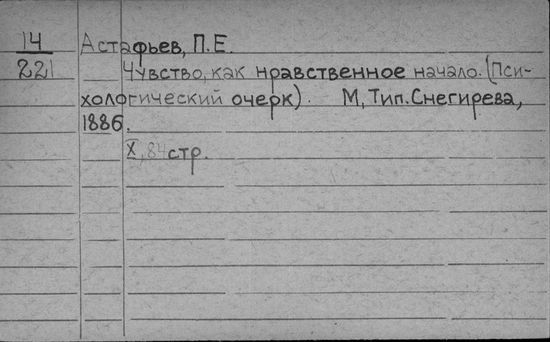 14 Астафьев, П.Е.
221 Чувство, как нравственное начало. (Пси-
хологический очерк). М, Тип. Снегирева,
1886.
X, 84 стр.